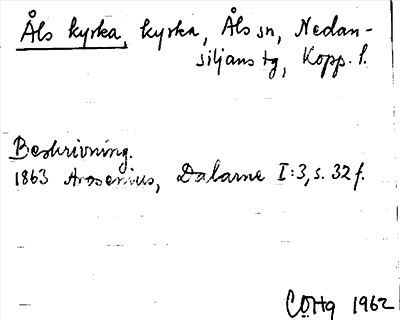 Åls kyrka, kyrka, Åls sn, Nedan-
siljans tg, Kopp. l.
Beskrivning.
1863 Arosenius, Dalarne I:3, s. 32 f.
COHg 1962